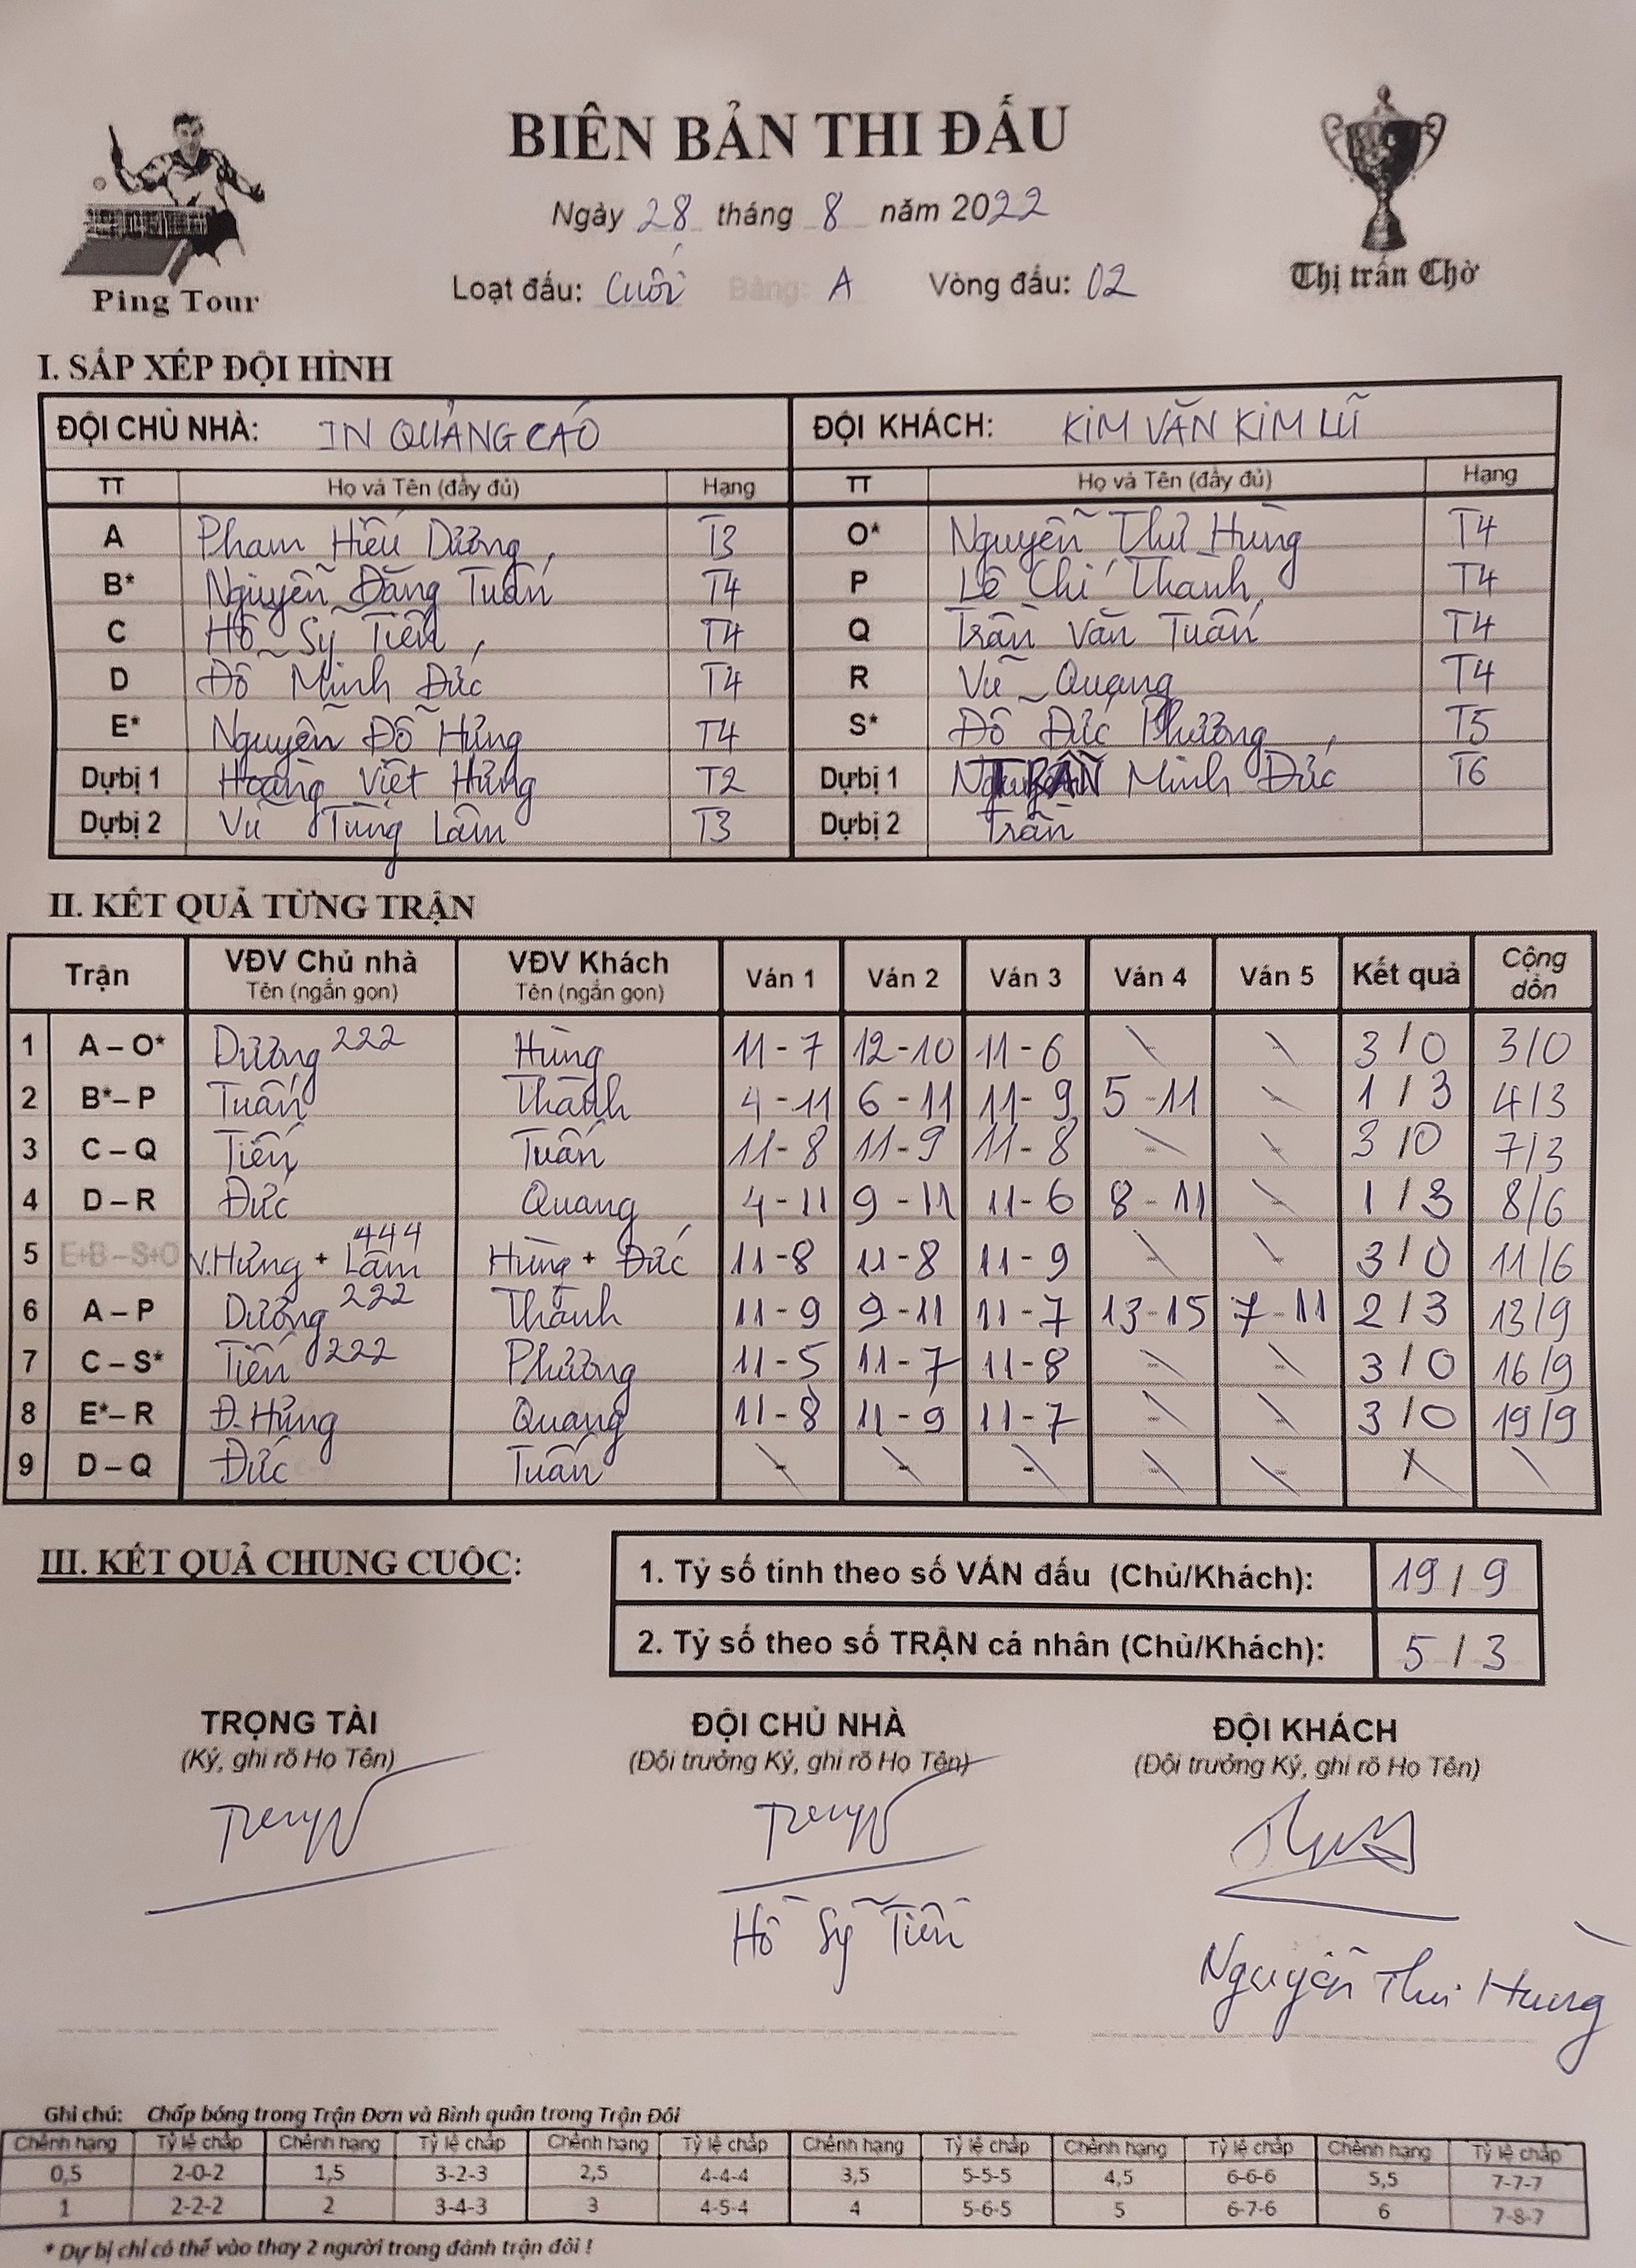 BIÊN BẢN THI ĐẤU
Ngày 28 tháng 8 năm 2022
Loạt đấu: Cuối Bảng: A Vòng đấu: 02
Ping Tour
Thị trấn Chờ
I. SẮP XẾP ĐỘI HÌNH
ĐỘI CHỦ NHÀ: IN QUẢNG CÁO ĐỘI KHÁCH: KIM VĂN KIM LŨ
TT Họ và Tên (đầy đủ) Hạng TT Họ và Tên (đầy đủ) Hạng
A Phạm Hiếu Dương T3 O* Nguyễn Thư Hùng T4
B* Nguyễn Đăng Tuấn T4 P Lê Chí Thành T4
C Hồ Sỹ Tiến T4 Q Trần Văn Tuấn T4
D Đỗ Minh Đức T4 R Vũ Quang T4
E* Nguyễn Đỗ Hưng T4 S* Đỗ Đức Phương T5
Dự bị 1 Hoàng Việt Hưng T2 Dự bị 1 TRẦN Minh Đức T6
Dự bị 2 Vũ Tùng Lâm T3 Dự bị 2 Trần
II. KẾT QUẢ TỪNG TRẬN
Trận VĐV Chủ nhà Tên (ngắn gọn) VĐV Khách Tên (ngắn gọn) Ván 1 Ván 2 Ván 3 Ván 4 Ván 5 Kết quả Cộng dồn
1 A – O* Dương 222 Hùng 11 - 7 12 - 10 11 - 6 - - 3 / 0 3/0
2 B* – P Tuấn Thành 4 - 11 6 - 11 11 - 9 5 - 11 - 1 / 3 4/3
3 C – Q Tiến Tuấn 11 - 8 11 - 9 11 - 8 - - 3 / 0 7/3
4 D – R Đức Quang 4 - 11 9 - 11 11 - 6 8 - 11 - 1 / 3 8/6
5 E+B – S+O V.Hưng + Lâm 444 Hùng + Đức 11 - 8 11 - 8 11 - 9 - - 3 / 0 11/6
6 A – P Dương 222 Thành 11 - 9 9 - 11 11 - 7 13 - 15 7 - 11 2 / 3 13/9
7 C – S* Tiến 222 Phương 11 - 5 11 - 7 11 - 8 - - 3 / 0 16/9
8 E* – R Đ.Hưng Quang 11 - 8 11 - 9 11 - 7 - - 3 / 0 19/9
9 D – Q Đức Tuấn - - - - - /
III. KẾT QUẢ CHUNG CUỘC:
1. Tỷ số tính theo số VÁN đấu (Chủ/Khách): 19 / 9
2. Tỷ số theo số TRẬN cá nhân (Chủ/Khách): 5 / 3
TRỌNG TÀI ĐỘI CHỦ NHÀ ĐỘI KHÁCH
(Ký, ghi rõ Họ Tên) (Đội trưởng Ký, ghi rõ Họ Tên) (Đội trưởng Ký, ghi rõ Họ Tên)
Hồ Sỹ Tiến
Nguyễn Thư Hùng
Ghi chú: Chấp bóng trong Trận Đơn và Bình quân trong Trận Đôi
Chênh hạng Tỷ lệ chấp Chênh hạng Tỷ lệ chấp Chênh hạng Tỷ lệ chấp Chênh hạng Tỷ lệ chấp Chênh hạng Tỷ lệ chấp Chênh hạng Tỷ lệ chấp
0,5 2-0-2 1,5 3-2-3 2,5 4-4-4 3,5 5-5-5 4,5 6-6-6 5,5 7-7-7
1 2-2-2 2 3-4-3 3 4-5-4 4 5-6-5 5 6-7-6 6 7-8-7
* Dự bị chỉ có thể vào thay 2 người trong đánh trận đôi !